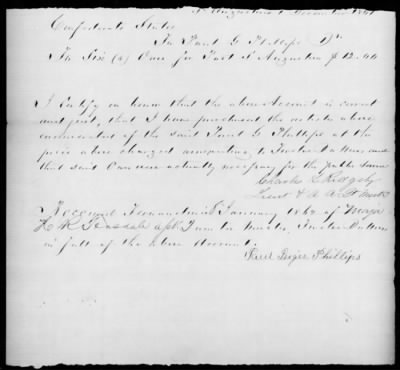 St Augustine 1 December 1861
Confederate States
To Paul G Phillips Dr
To Six (6) Oars for Post St Augustine $12.00
I Certify on honor that the above Account is correct
and just, that I have purchased the articles above
enumerated of the said Paul G Phillips at the
price above charged amounting to Twelve dollars, and
that said Oars were actually necessary for the public service
Charles
Lieut & A. A. Qt Mast
Received Fernandina 8 January 1862 of Major
H. R. Teasdale asst Quarter Master, Twelve Dollars
in full of the above Account.
Phillips